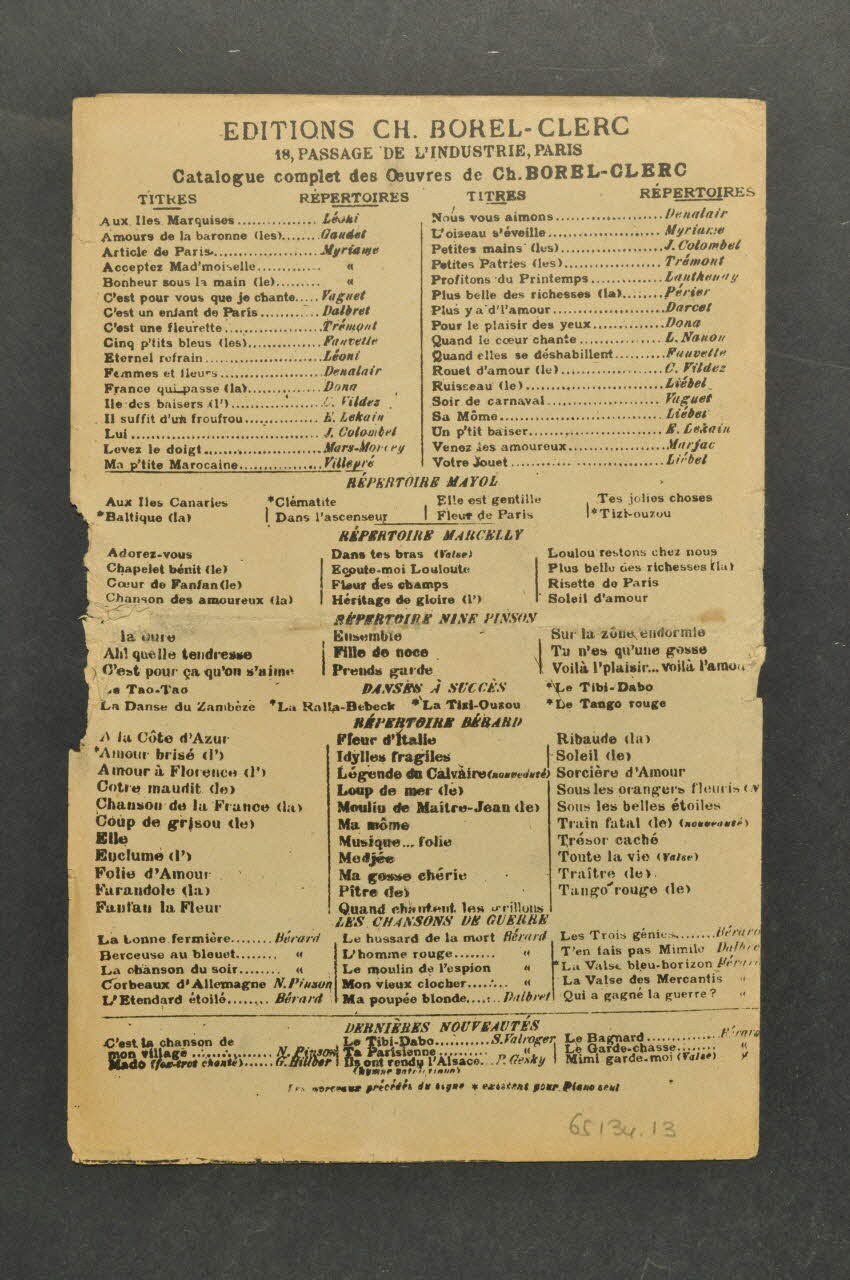 EDITIONS CH. BOREL-CLERC
18, PASSAGE DE L'INDUSTRIE, PARIS
Catalogue complet des Œuvres de Ch. BOREL-CLERC
TITRES RÉPERTOIRES
Aux Iles Marquises................ Léoni
Amours de la baronne (les)....... Gaudet
Article de Paris..................... Myriame
Acceptez Mad'moiselle............ «
Bonheur sous la main (le)........ «
C'est pour vous que je chante..... Vaguet
C'est un enfant de Paris............ Dalbret
C'est une fleurette................. Trémont
Cinq p'tits bleus (les)............. Fauvette
Eternel refrain..................... Léoni
Femmes et fleurs................. Denalair
France qui passe (la)............. Dona
Ile des baisers (l')................ C. Vildez
Il suffit d'un froufrou............. E. Lekain
Lui................................. J. Colombel
Levez le doigt..................... Mars-Moncey
Ma p'tite Marocaine.............. Villepré
TITRES RÉPERTOIRES
Nous vous aimons................. Denalair
L'oiseau s'éveille................. Myriame
Petites mains (les)................ J. Colombel
Petites Patries (les)............... Trémont
Profitons du Printemps.......... Lanthenay
Plus belle des richesses (la)....... Périer
Plus y a d'l'amour................ Darcet
Pour le plaisir des yeux.......... Dona
Quand le cœur chante............. L. Nanon
Quand elles se déshabillent........ Fauvette
Rouet d'amour (le)............... C. Vildez
Ruisseau (le)...................... Liébel
Soir de carnaval.................. Vaguet
Sa Môme........................... Liébel
Un p'tit baiser.................... E. Lekain
Venez les amoureux............... Marjac
Votre Jouet........................ Liébel
RÉPERTOIRE MAYOL
Aux Iles Canaries *Clématite Elle est gentille Tes jolies choses
*Baltique (la) Dans l'ascenseur Fleur de Paris *Tizi-ouzou
RÉPERTOIRE MARCELLY
Adorez-vous Dans tes bras (Valse) Loulou restons chez nous
Chapelet bénit (le) Ecoute-moi Louloute Plus belle des richesses (la)
Cœur de Fanfan (le) Fleur des champs Risette de Paris
Chanson des amoureux (la) Héritage de gloire (l') Soleil d'amour
RÉPERTOIRE NINE PINSON
la dure Ensemble Sur la zône endormie
Ah! quelle tendresse Fille de noce Tu n'es qu'une gosse
C'est pour ça qu'on s'aime Prends garde Voilà l'plaisir... voilà l'amou
DANSES À SUCCÈS
Le Tao-Tao *Le Tibi-Dabo
La Danse du Zambèze *La Ralla-Bebeck *La Tizi-Ouzou *Le Tango rouge
RÉPERTOIRE BÉRARD
A la Côte d'Azur Fleur d'Italie Ribaude (la)
*Amour brisé (l') Idylles fragiles Soleil (le)
Amour à Florence (l') Légende du Calvaire (nouveauté) Sorcière d'Amour
Cotre maudit (le) Loup de mer (le) Sous les orangers fleuris (V
Chanson de la France (la) Moulin de Maître-Jean (le) Sous les belles étoiles
Coup de grisou (le) Ma môme Train fatal (le) (nouveauté)
Elle Musique... folie Trésor caché
Enclume (l') Medjée Toute la vie (Valse)
Folie d'Amour Ma gosse chérie Traître (le)
Farandole (la) Pître (le) Tango rouge (le)
Fanfan la Fleur Quand chantent les grillons
LES CHANSONS DE GUERRE
La bonne fermière........ Bérard Le hussard de la mort Bérard Les Trois génies........ Bérard
Berceuse au bleuet........ « L'homme rouge........ « T'en fais pas Mimile Dalbre
La chanson du soir........ « Le moulin de l'espion « *La Valse bleu-horizon Bérard
Corbeaux d'Allemagne N. Pinson Mon vieux clocher........ « La Valse des Mercantis «
L'Etendard étoilé........ Bérard Ma poupée blonde....... Dalbret Qui a gagné la guerre ? «
DERNIÈRES NOUVEAUTÉS
C'est la chanson de Le Tibi-Dabo........... S. Valroger Le Bagnard............. Bérard
mon village............ N. Pinson Ta Parisienne......... « Le Garde-chasse....... «
Mado (fox-trot chanté)...... G. Hillber Ils ont rendu l'Alsace.. P. Gesky Mimi garde-moi (Valse) «
Les morceaux précédés du signe * existent pour Piano seul
65 134.13